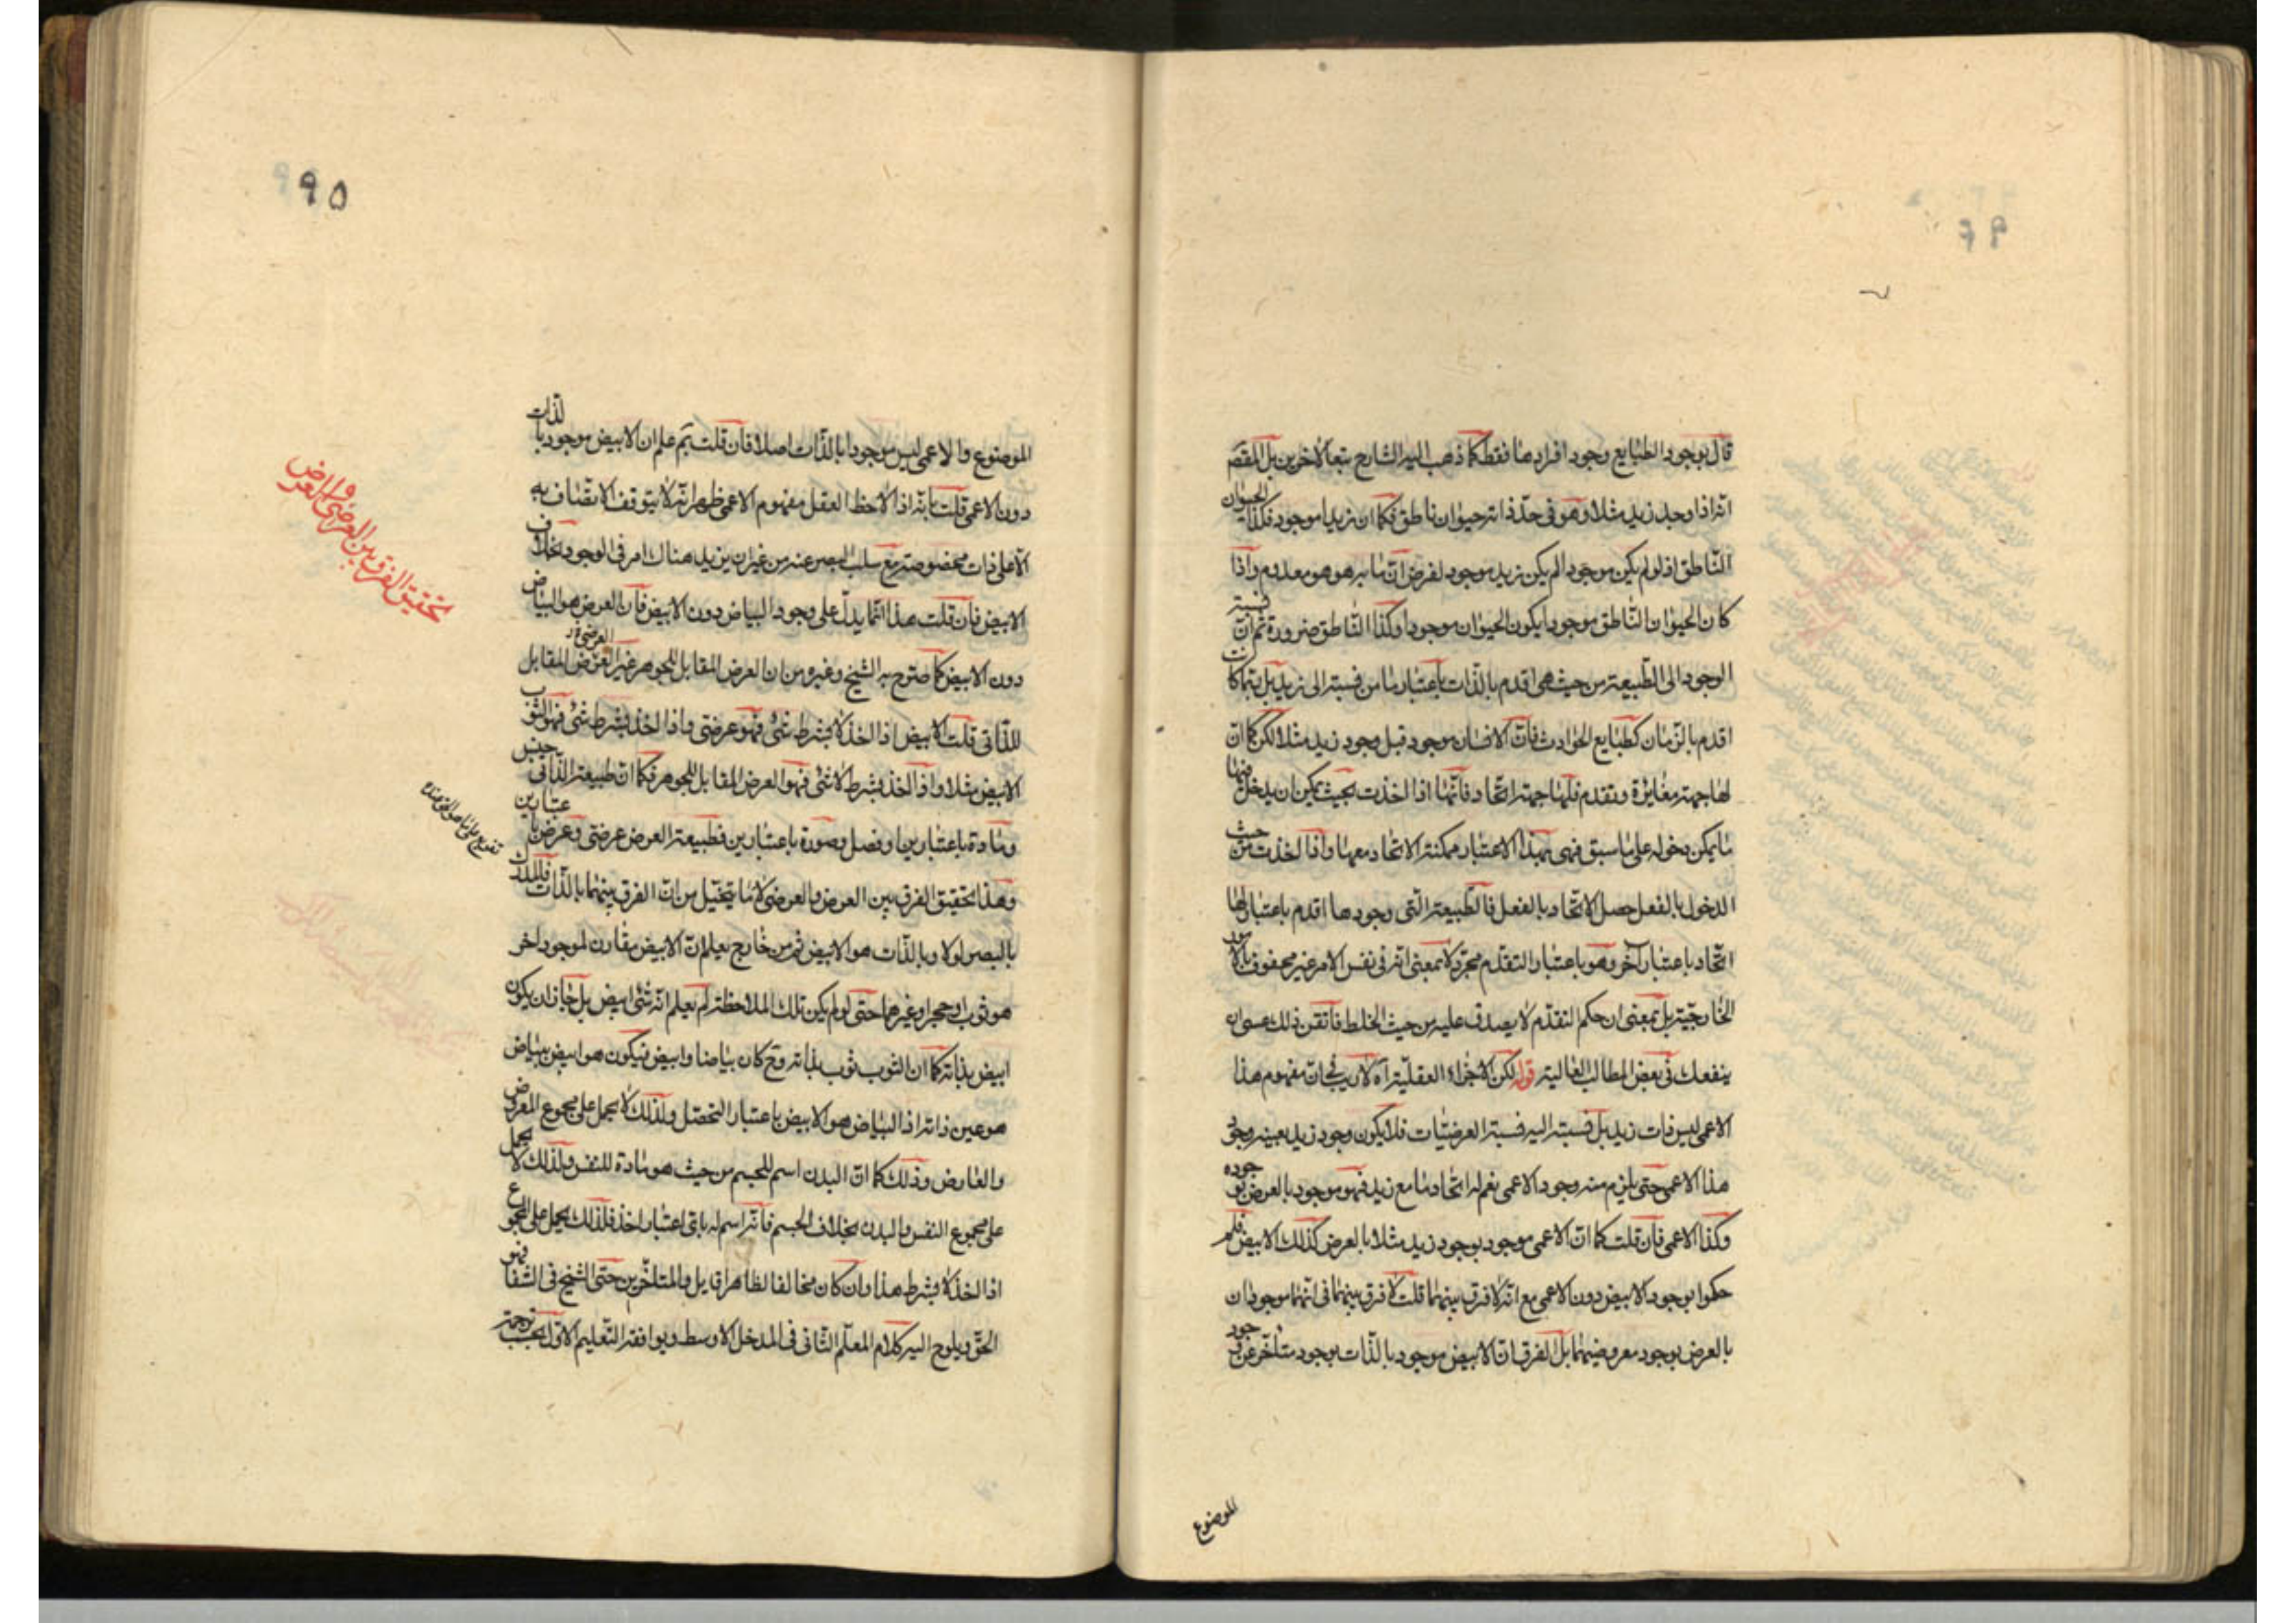 قال بوجود الطبايع وجود افرادها فقط كما ذهب اليه الشارح تبعا لاخرين بل المقصد
انه اذا وجد زيد مثلا وهو في حد ذاته حيوان ناطق فكما ان زيدا موجود فكذا الحيوان
الناطق اذ لو لم يكن موجودا لم يكن زيد موجود لفرض ان ما به هو هو معدوم واذا
كان الحيوان الناطق موجودا يكون الحيوان موجودا وكذا الناطق ضرورة ثم ان نسبته
الوجود الى الطبيعة من حيث هي اقدم بالذات باعتبار ما من نسبته الى زيد بل ربما كانت
اقدم بالزمان كطبايع الحوادث فان الانسان موجود قبل وجود زيد مثلا لكن كما ان
لها جهة مغايرة وتقدم فلها جهة اتحاد فانها اذا اخذت بحيث يمكن ان يدخل فيها
ما يمكن دخوله على ما سبق فهي بهذا الاعتبار ممكنة الاتحاد معها واذا اخذت من حيث
الدخول بالفعل حصل الاتحاد بالفعل فالطبيعة التي وجودها اقدم باعتبار لها
اتحاد باعتبار آخر وهو باعتبار التقدم مجرد لا بمعنى انه في نفس الامر غير محفوف بالامور
الخارجية بل بمعنى ان حكم التقدم لا يصدق عليه من حيث الخلط فاتقن ذلك عسى ان
ينفعك في بعض المطالب العالية قوله لكن الاجزاء العقلية آه لا ريب في ان مفهوم هذا
الاعمى ليس ذات زيد بل نسبته اليه نسبة العرضيات فلا يكون وجود زيد بعينه وجود
هذا الاعمى حتى يلزم منه وجود الاعمى نعم له اتحاد ما مع زيد فهو موجود بالعرض بوجوده
وكذا الاعمى فان قلت كما ان الاعمى موجود بوجود زيد مثلا بالعرض كذلك الابيض فلم
حكموا بوجود الابيض دون الاعمى مع انه لا فرق بينهما قلت لا فرق بينهما في انهما موجودان
بالعرض بوجود معروضيهما بل الفرق ان الابيض موجود بالذات بوجود متاخر عن وجود
الموضوع
٩٥
الموضوع والاعمى ليس موجودا بالذات اصلا فان قلت بم علم ان الابيض موجود بالذات
دون الاعمى قلت بانه اذا لاحظ العقل مفهوم الاعمى ظهر انه لا يتوقف الاتصاف به
الا على ذات مخصوصة مع سلب البصر عنه من غير ان يزيد هناك امر في الوجود بخلاف
الابيض فان قلت هذا انما يدل على وجود البياض دون الابيض فان العرض هو البياض
دون الابيض كما صرح به الشيخ وغيره من ان العرض المقابل للجوهر غير العرضي المقابل
للذاتي قلت الابيض اذا اخذ لا بشرط شئ فهو عرضي واذا اخذ بشرط شئ فهو الثوب
الابيض مثلا واذا اخذ بشرط لا شئ فهو العرض المقابل للجوهر فكما ان طبيعة الذاتي جنس
ومادة باعتبارين او فصل وصورة باعتبارين فطبيعة العرض عرضي وعرض باعتبارين
وهذا تحقيق الفرق بين العرض والعرضي لا ما يتخيل من ان الفرق بينهما بالذات فالمدرك
بالبصر اولا وبالذات هو الابيض ثم من خارج يعلم ان الابيض مقارن لموجود اخر
هو ثوب او حجر او غيرهما حتى لو لم يكن تلك الملاحظة لم يعلم انه شئ ابيض بل جاز ان يكون
ابيض بذاته كما ان الثوب ثوب بذاته وح كان بياضا وابيض فيكون هو ابيض ببياض
هو عين ذاته اذ البياض هو الابيض باعتبار التحصل ولذلك لا يحمل على مجموع المعروض
والعارض وذلك كما ان البدن اسم للجسم من حيث هو مادة للنفس ولذلك لا يحمل
على مجموع النفس والبدن بخلاف الجسم فانه اسم له باي اعتبار اخذ فلذلك يحمل على المجموع
اذا اخذ لا بشرط هذا وان كان مخالفا لظاهر اقاويل المتاخرين حتى الشيخ في الشفا فهو
الحق ويلوح اليه كلام المعلم الثاني في المدخل الاوسط ويوافقه التعليم الاول بحسب ترجمة
تحقيق الفرق بين العرضي والعرض